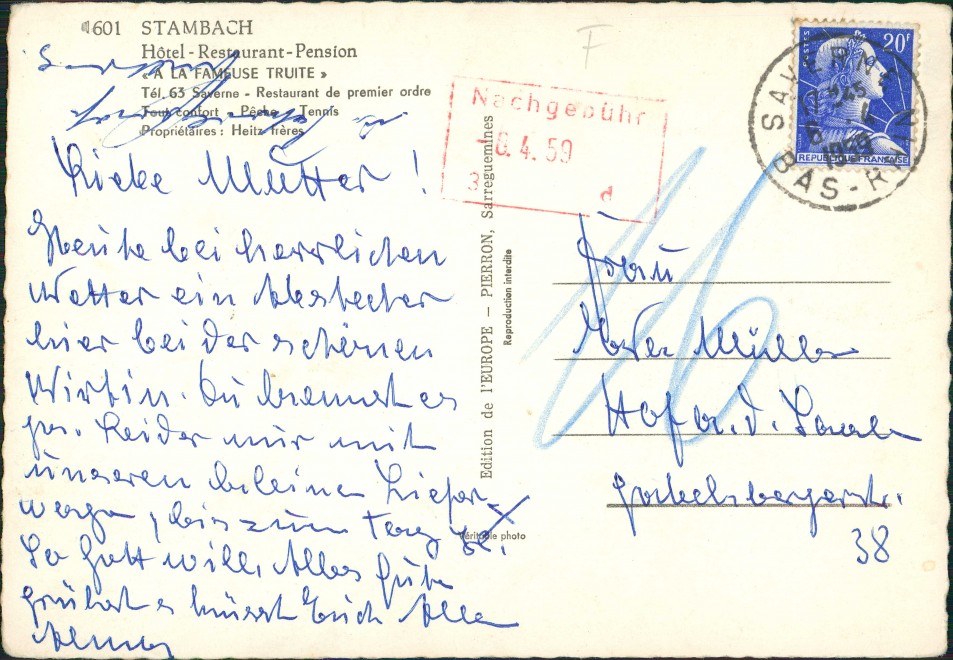 601 STAMBACH
Hôtel - Restaurant - Pension
« A LA FAMEUSE TRUITE »
Tél. 63 Saverne - Restaurant de premier ordre
Tout confort - Pêche - Tennis
Propriétaires : Heitz frères
Liebe Mutter !
Heute bei herrlichen
Wetter ein Abstecher
hier bei der schönen
Wirtin. Du kennst es
ja. Leider nur mit
unseren kleinen Liefer-
wagen, bis zum Tag X.
So Gott will. Alles Gute
grüßt & küsst Euch Alle
Edition de l'EUROPE - PIERRON, Sarreguemines
Reproduction interdite
Véritable photo
F
Nachgebühr
6. 4. 59
3 d
16
POSTES 20F
REPUBLIQUE FRANÇAISE
SAVERNE
1959
BAS-RHIN
Frau
Müller
Hof a. d. Saale
38